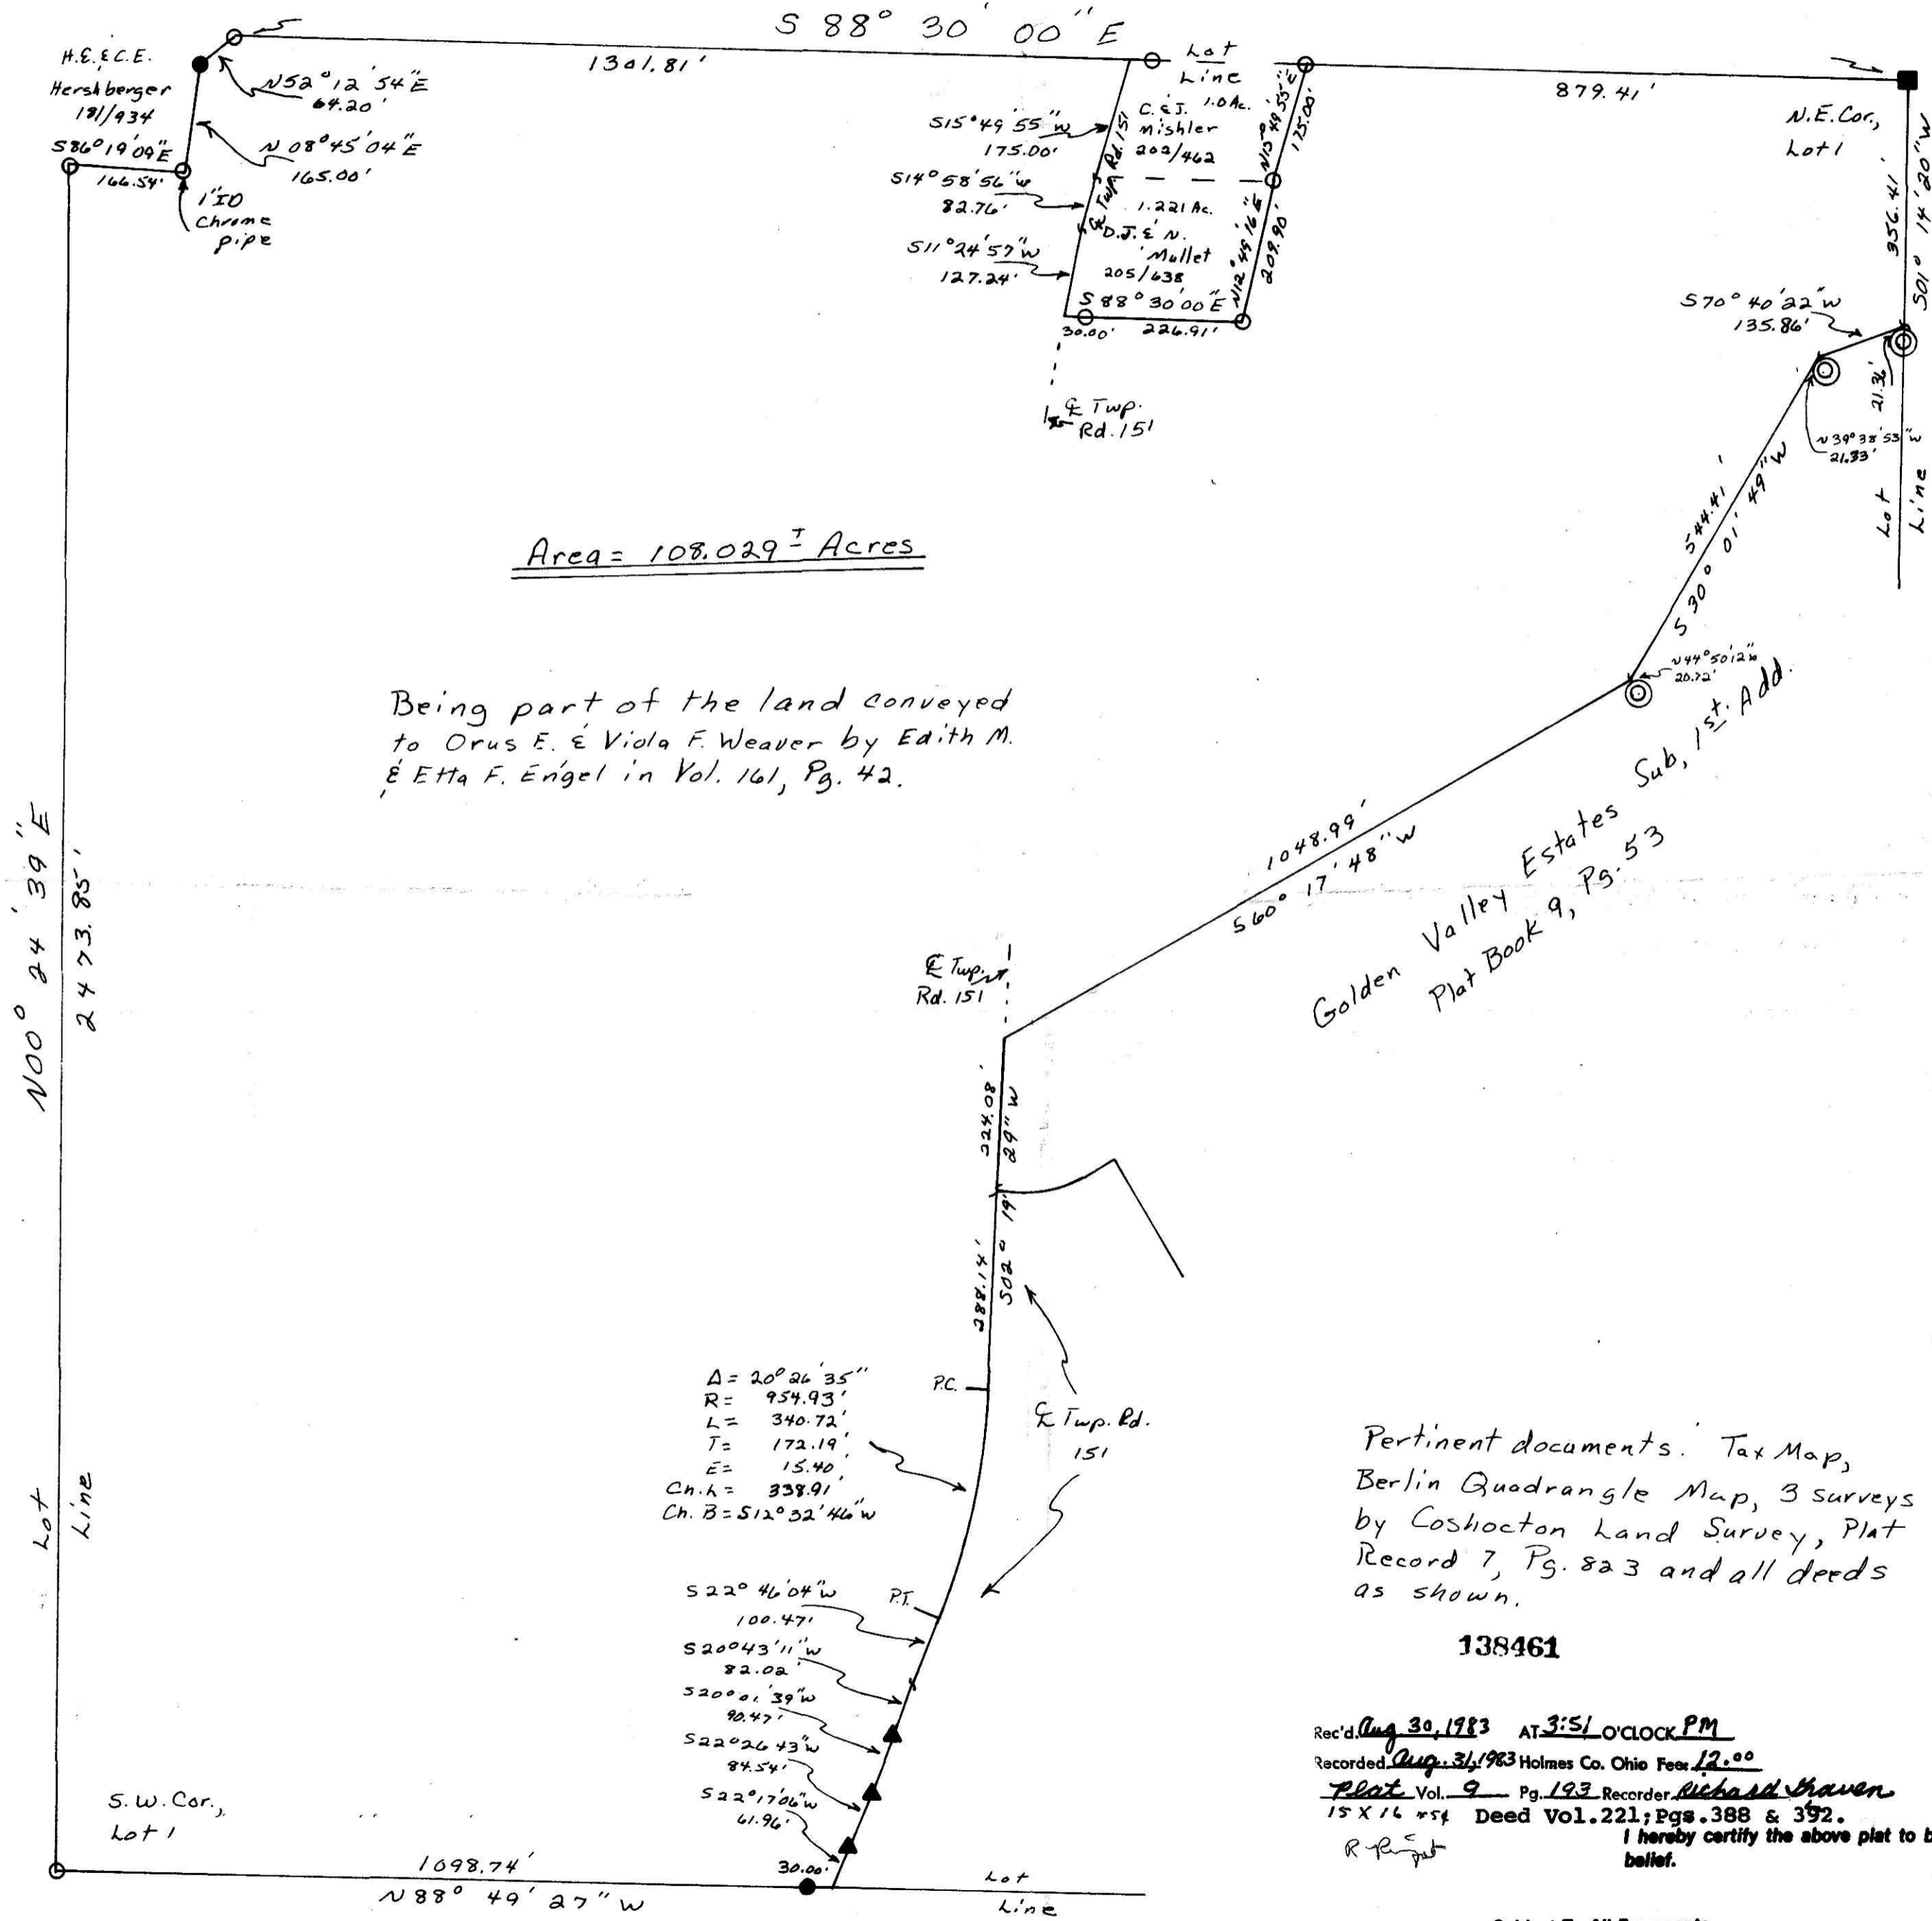 S 88° 30' 00" E
1301.81'
Lot
Line
879.41'
H.E. & C.E.
Hershberger
181/934
N52°12'54"E
64.20'
S86°19'09"E
166.54'
N08°45'04"E
165.00'
1"ID
Chrome
pipe
S15°49'55"W
175.00'
S14°58'56"W
82.76'
S11°24'57"W
127.24'
℄ Twp. Rd. 151
1.0 Ac.
C. & J.
Mishler
202/462
1.221 Ac.
D.J. & N.
Mullet
205/638
N15°49'55"E
175.00'
N12°49'16"E
209.90'
S88°30'00"E
30.00'
226.91'
℄ Twp.
Rd. 151
N.E. Cor.,
Lot 1
356.41'
S01° 14' 20" W
S70°40'22"W
135.86'
21.36'
N39°38'53"W
21.33'
Lot
Line
544.41'
S 30° 01' 49" W
N44°50'12"W
20.72'
Area = 108.029± Acres
Being part of the land conveyed
to Orus E. & Viola F. Weaver by Edith M.
& Etta F. Engel in Vol. 161, Pg. 42.
1048.99'
S60° 17' 48" W
Golden Valley Estates Sub, 1st. Add.
Plat Book 9, Pg. 53
N00° 24' 39" E
2473.85'
℄ Twp.
Rd. 151
224.08'
288.14'
S02° 19' 29" W
Δ = 20°26'35"
R = 954.93'
L = 340.72'
T = 172.19'
E = 15.40'
Ch. L = 338.91'
Ch. B = S12°32'46"W
P.C.
℄ Twp. Rd.
151
P.T.
S22°46'04"W
100.47'
S20°43'11"W
82.02'
S20°01'39"W
90.47'
S22°26'43"W
84.54'
S22°17'06"W
61.96'
Lot
Line
S.W. Cor.,
Lot 1
1098.74'
30.00'
N88° 49' 27" W
Lot
Line
Pertinent documents. Tax Map,
Berlin Quadrangle Map, 3 surveys
by Coshocton Land Survey, Plat
Record 7, Pg. 823 and all deeds
as shown.
138461
Rec'd. Aug 30, 1983 AT 3:51 O'CLOCK PM
Recorded Aug. 31, 1983 Holmes Co. Ohio Fee: 12.00
Plat Vol. 9 Pg. 193 Recorder Richard Graven
15 X 16 x 5¢ Deed Vol.221; Pgs. 388 & 392.
I hereby certify the above plat to b
belief.